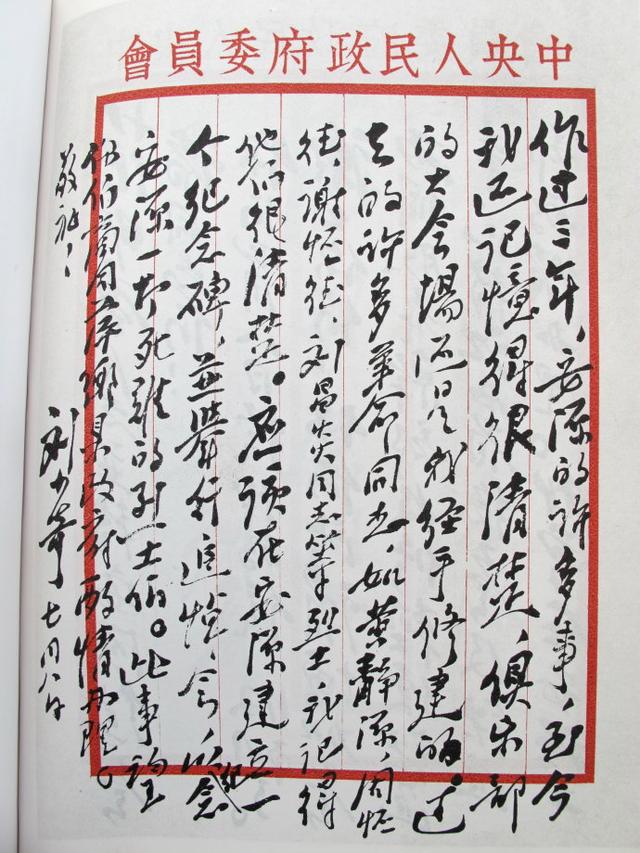 中央人民政府委員會
作过三年，安源的许多事，至今
我还记憶得很清楚，俱乐部
的大会場还是我经手修建的。过
去的许多革命同志，如黄静源，周怀
德，谢怀德，刘昌炎同志等烈士，我记得
他们很清楚。应该在安源建立一
个纪念碑，並舉行追悼会，以纪念
安源一切死难的烈士们。此事望
你们商同萍鄉县政府酌情办理。
敬礼！
刘少奇 七月八日